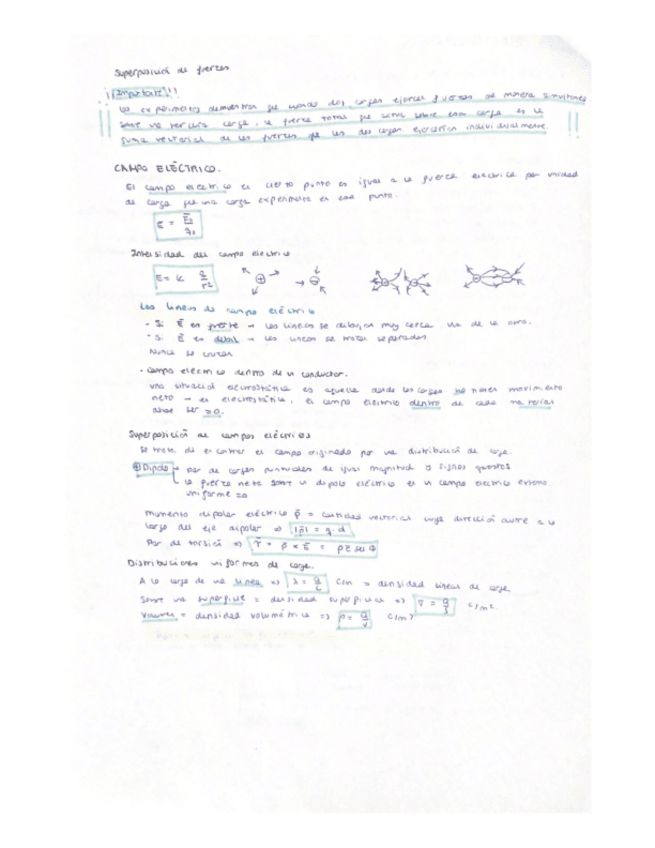 Superposición de fuerzas
¡¡Importante!!
Los experimentos demuestran que cuando dos cargas ejercen fuerzas de manera simultánea
sobre una tercera carga, la fuerza total que actúa sobre esa carga es la
suma vectorial de las fuerzas que las dos cargas ejercerían individualmente.
CAMPO ELÉCTRICO.
El campo eléctrico en cierto punto es igual a la fuerza eléctrica por unidad
de carga que una carga experimenta en ese punto.
E = F0/q0
Intensidad del campo eléctrico
E = K q/r²
Las líneas de campo eléctrico
- Si E es fuerte → las líneas se dibujan muy cerca una de la otra.
- Si E es débil → las líneas se trazan separadas
Nunca se cruzan
- Campo eléctrico dentro de un conductor.
Una situación electrostática es aquella donde las cargas no tienen movimiento
neto → en electrostática, el campo eléctrico dentro de cada material
debe ser = 0.
Superposición de campos eléctricos
Se trata de encontrar el campo originado por una distribución de carga.
Dipolo par de cargas puntuales de igual magnitud y signos opuestos
la fuerza neta sobre un dipolo eléctrico en un campo eléctrico externo
uniforme = 0
Momento dipolar eléctrico p = cantidad vectorial cuya dirección ocurre a lo
largo del eje dipolar => |p| = q·d
Par de torsión => τ = p × E = pE sen Φ
Distribuciones uniformes de carga.
A lo largo de una línea => λ = q/L C/m = densidad lineal de carga
Sobre una superficie = densidad superficial => σ = q/S C/m²
Volumen = densidad volumétrica => ρ = q/V C/m³